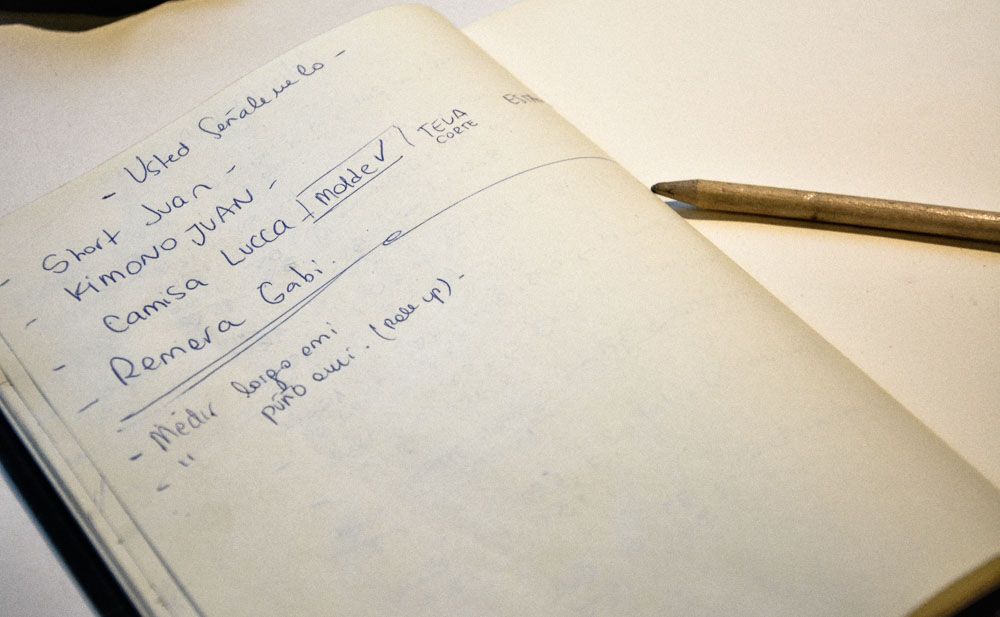 - Usted Señalemelo -
- Short Juan -
- KIMONO JUAN -
- Camisa Lucca → molde ✓ / TELA CORTE
- Remera Gabi.
- Medir largo emi
- " puño emi. (Role up) -